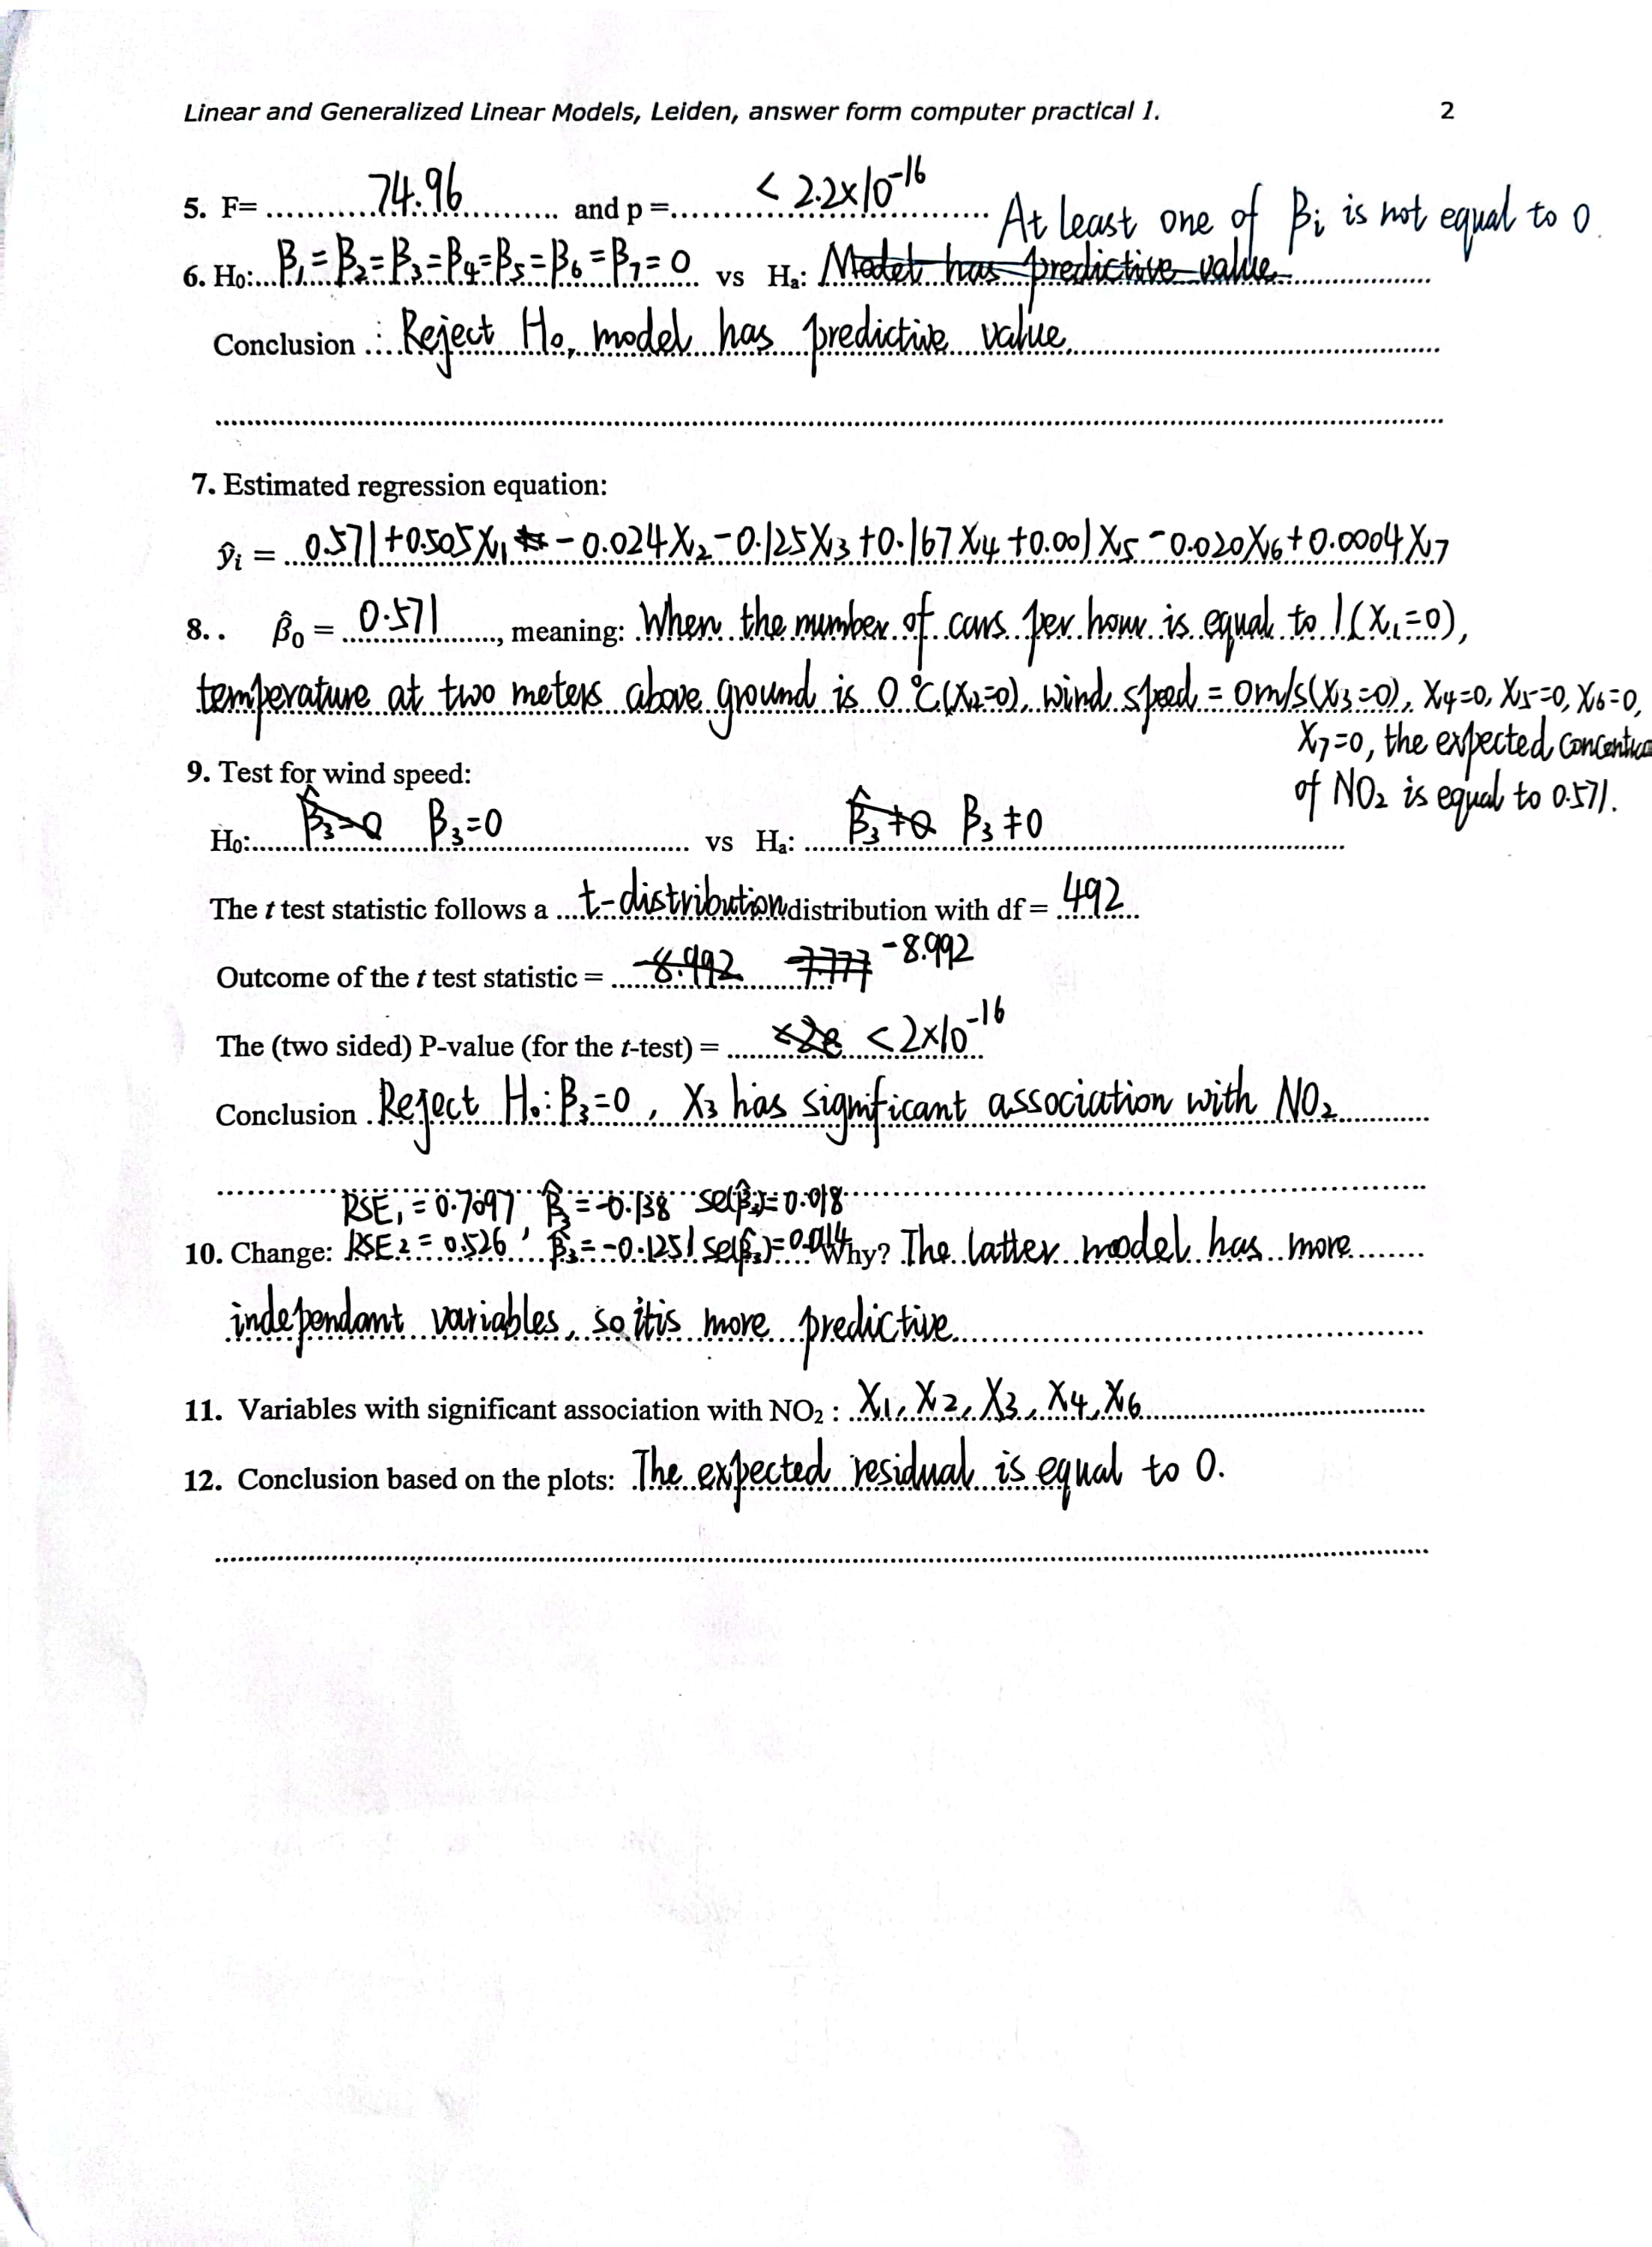 Linear and Generalized Linear Models, Leiden, answer form computer practical 1. 2
5. F= 74.96 and p = < 2.2x10^-16
At least one of βi is not equal to 0.
6. H0: β1=β2=β3=β4=β5=β6=β7=0 vs Ha: Model has predictive value
Conclusion : Reject H0, model has predictive value.
7. Estimated regression equation:
ŷi = 0.571+0.505X1 -0.024X2-0.125X3+0.167X4+0.001X5-0.020X6+0.0004X7
8.. β̂0 = 0.571, meaning: When the number of cars per hour is equal to 1(X1=0),
temperature at two meters above ground is 0℃(X2=0), wind speed = 0m/s(X3=0), X4=0, X5=0, X6=0,
X7=0, the expected
of NO2 is equal to 0.571.
9. Test for wind speed:
H0: β̂3=0 β3=0 vs Ha: β̂3≠0 β3≠0
The t test statistic follows a t-distribution distribution with df = 492
Outcome of the t test statistic = -8.992 -8.992
The (two sided) P-value (for the t-test) = <2x10^-16
Conclusion Reject H0: β3=0, X3 has significant association with NO2
RSE1 = 0.7097 β̂3=-0.138 se(β̂3)=0.018
10. Change: RSE2=0.526, β̂3=-0.1251 se(β̂3)=0.014 Why? The latter model has more
independant variables, so it is more predictive.
11. Variables with significant association with NO2 : X1, X2, X3, X4, X6
12. Conclusion based on the plots: The expected residual is equal to 0.